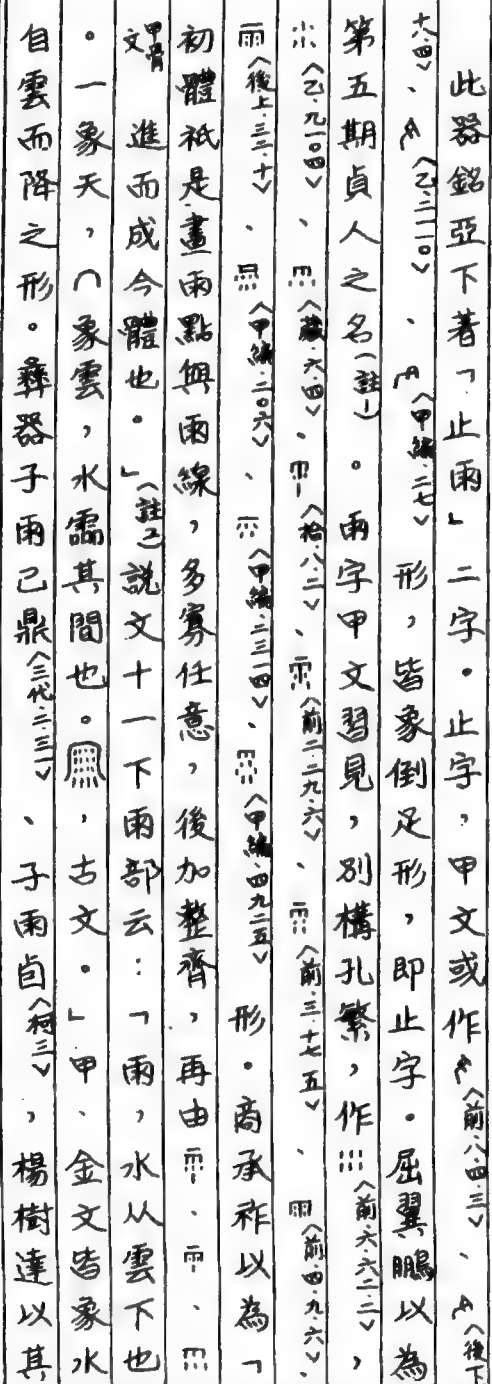 此器銘亞下著「止雨」二字。止字,甲文或作〈前.八.四.三〉、〈後下
十八.四〉、〈乙.二一一〇〉、〈甲編.二七〉形,皆象倒足形,即止字。屈翼鵬以為
第五期貞人之名(註1)。雨字甲文習見,別構孔繁,作〈前.六.六二.二〉,
〈乙.九一〇四〉、〈藏.六.四〉、〈拾.八.二〉、〈前二.二九.六〉、〈前.三.十七.五〉、〈前.四.九.六〉、
〈後上.三二.十〉、〈甲編.二〇六〉、〈甲編.二三一四〉、〈甲編.四九二五〉形。商承祚以為「
初體祇是畫雨點與雨線,多寡任意,後加整齊,再由、、
甲骨文進而成今體也。」(註2)說文十一下雨部云:「雨,水从雲下也
。一象天,冂象雲,水霝其間也。,古文。」甲、金文皆象水
自雲而降之形。彝器子雨己鼎〈三代二.三一〉、子雨卣〈柯三〉,楊樹達以其